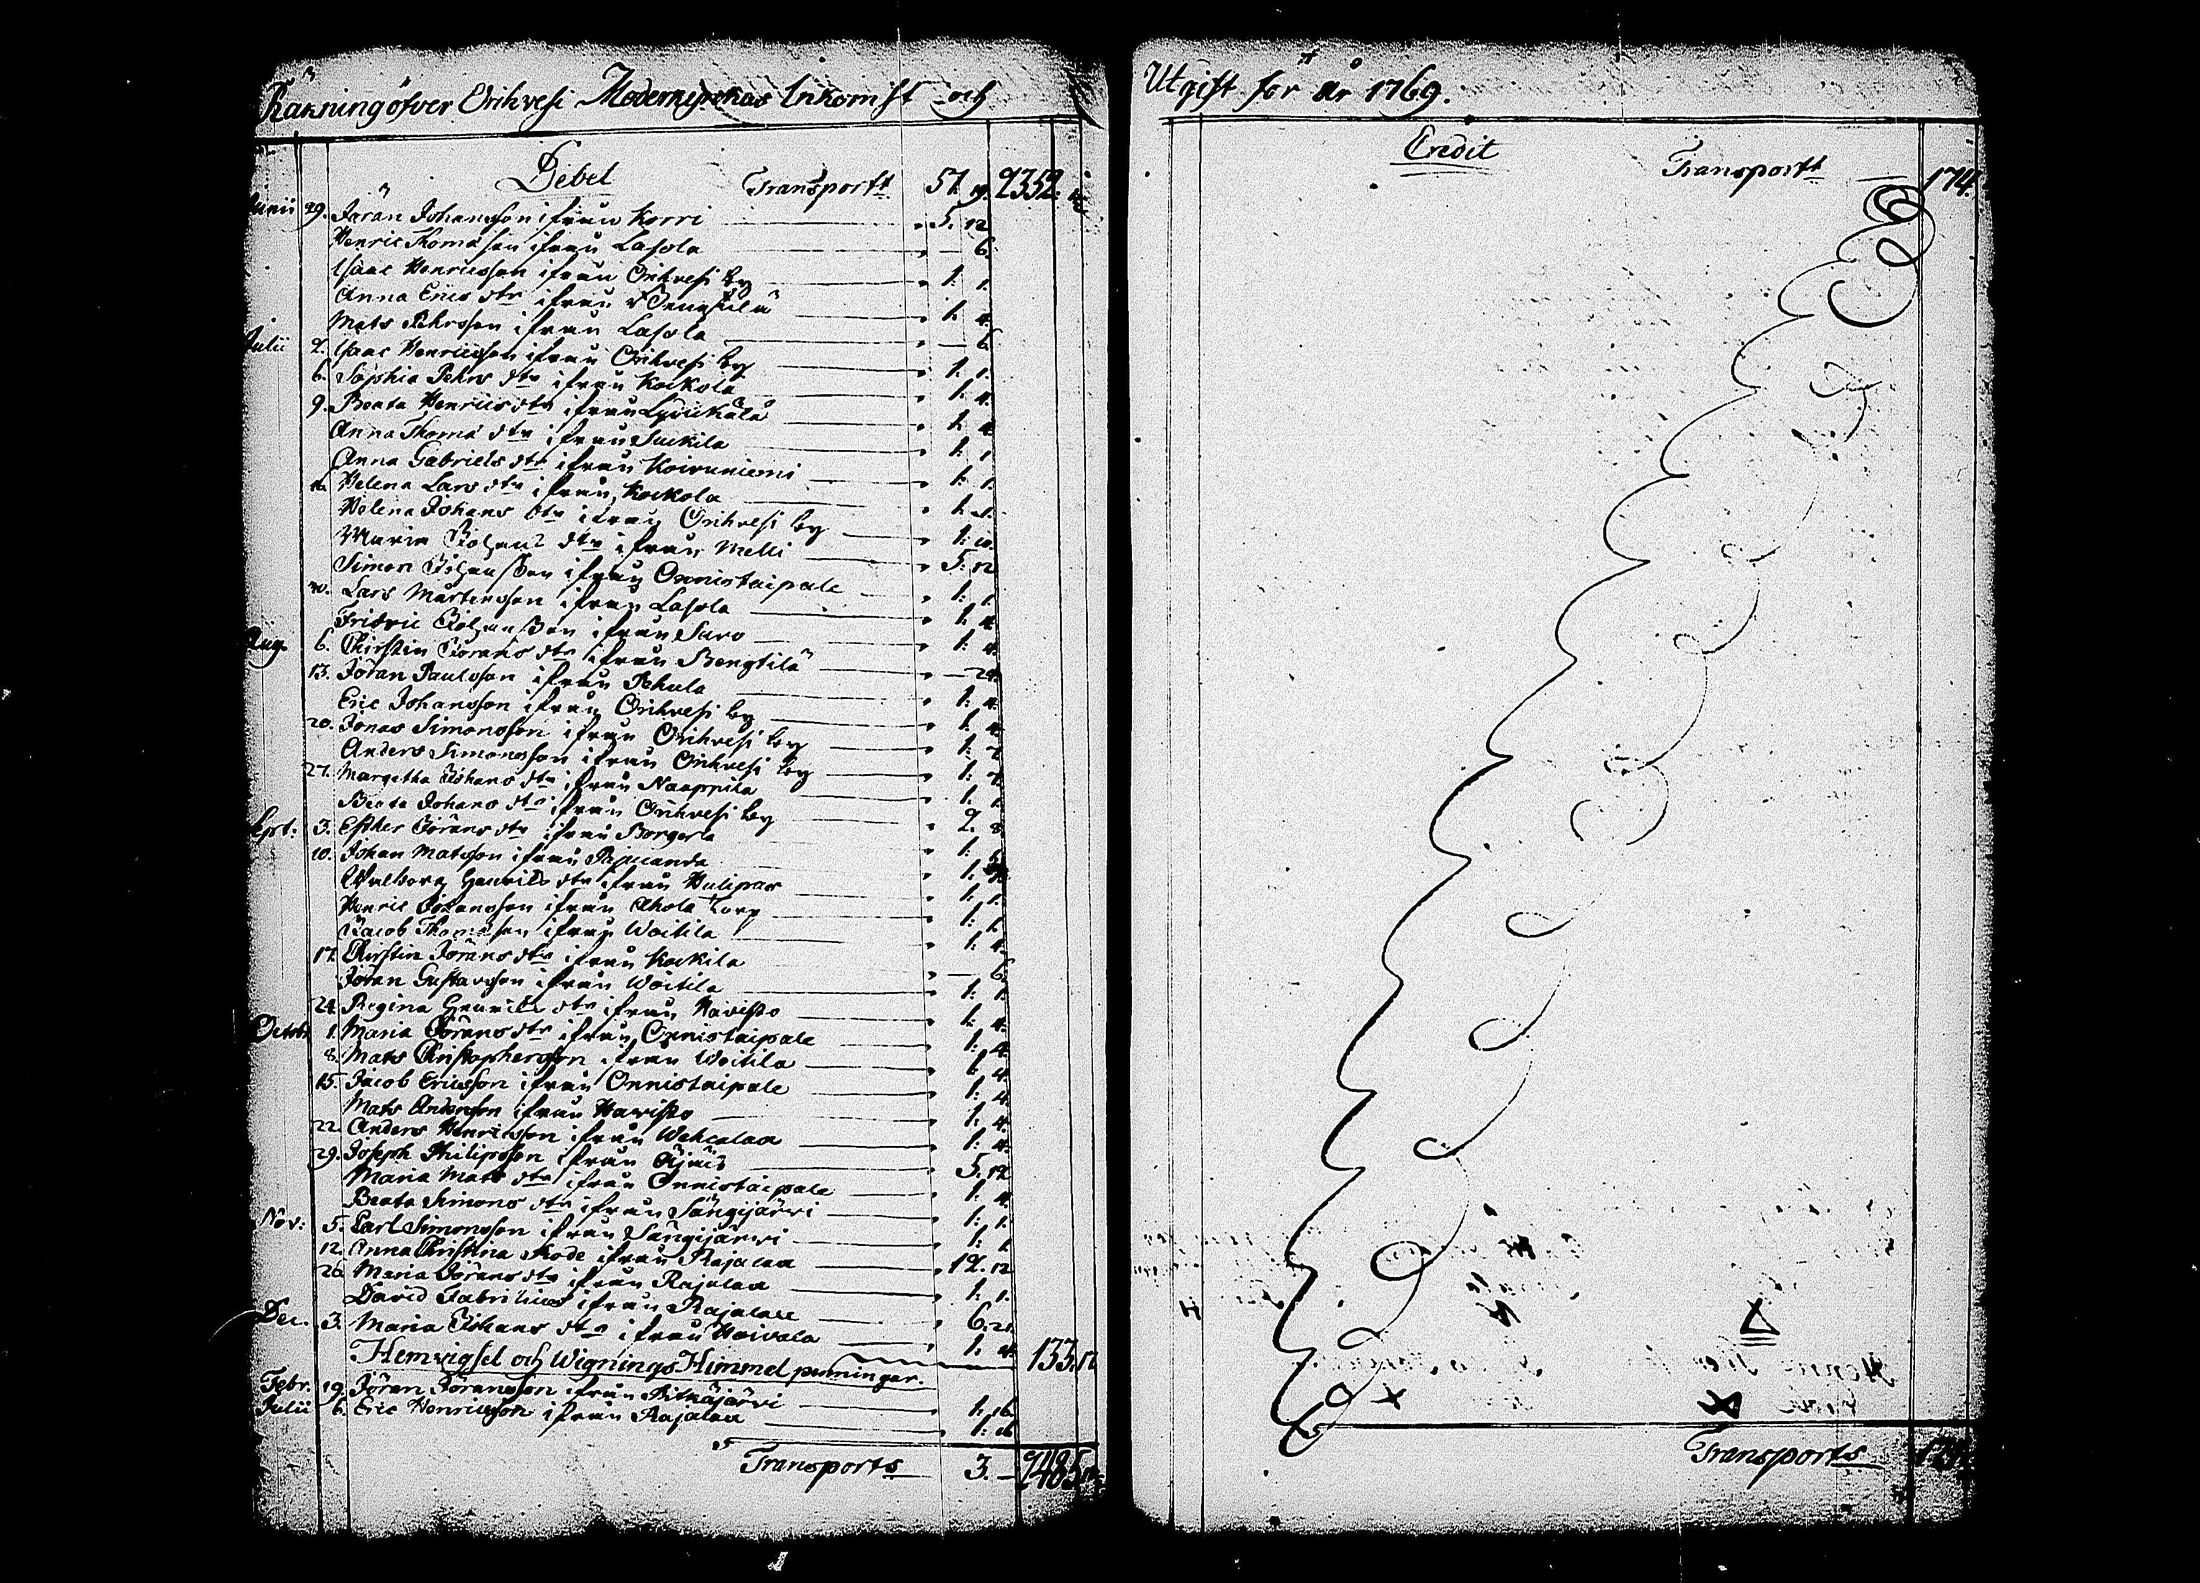 Räkning öfver Orihvesi Moderkyrkas Inkomst och
Debet Transportt 51. 19. 2352.
Junii 29. Jöran Johansson ifrån Korri 5. 12
Henric Thomasson ifrån Lasola — 6.
Isaac Henricsson ifrån Orihvesi by 1: 1.
Anna Erics dtr ifrån Bengtilä 1. 4.
Mats Pehrsson ifrån Lasola — 6.
Julii 2. Isaac Henricsson ifrån Orihvesi by 1: 1.
6. Sophia Pehrs dtr ifrån Kockola 1. 4.
9. Beata Henrics dtr ifrån 1. 4.
Anna Thoma dtr ifrån Suckila 1. 1
Anna Gabriels dtr ifrån Koivuniemi 1. 1.
16. Helena Lars dtr ifrån Kockola 1. 1.
Helena Johans dtr ifrån Orihvesi by 1: 10.
Maria Johans dtr ifrån Melli 5: 12
Simon Johansson ifrån Onnistaipale 1. 1.
Lars Mårtensson ifrån Lasola 1. 4.
Fridric Johansson ifrån Suro 1: 4.
Aug. 6. Chirstin Jörans dtr ifrån Bengtilä — 24.
13. Jöran Paulsson ifrån Pehula 1: 4.
Eric Johansson ifrån Orihvesi by 1. 4.
20. Jonas Simonsson ifrån Orihvesi by 1: 7.
Anders Simonsson ifrån Orihvesi by 1: 7.
27. Margetha Johans dtr ifrån Naappila 1. 1.
Beata Johans dtr ifrån Orihvesi by 2. 8.
Sept. 3. Esther Jörans dtr ifrån 1:
10. Johan Matsson ifrån 1.
Walborg Henrics dtr ifrån Hulipas 1. 1.
Henric Johansson ifrån Ahola Torp 1: 1.
Jacob Thomasson ifrån Woitila 1: 4.
17. Chirstin Jörans dtr ifrån Kockila — 6
Jöran Gustavsson ifrån Woitila 1: 1.
24. Regina Henrics dtr ifrån Havisto 1: 4.
Octobr. 1. Maria Jörans dtr ifrån Onnistaipale 1: 4.
8. Mats Christophersson ifrån Woitila 1. 4.
15. Jacob Ericsson ifrån Onnistaipale 1: 4.
Mats Andersson ifrån Havisto 1: 4.
22. Anders Henricsson ifrån Wehcalax 1: 4.
29. Joseph Philipsson ifrån 5. 12
Maria Mats dtr ifrån Onnistaipale 1. 4.
Beata Simons dtr ifrån Sängijärvi 1: 1.
Nov: 5. Carl Simonsson ifrån Sängijärvi 1: 1.
12. Anna Christina Kode ifrån Rajalax 12. 12
26. Maria Jörans dtr ifrån Rajalax 1: 1.
David ifrån Rajalax 6. 21.
Dec. 3. Maria Johans dtr ifrån Hoivala 1. 4. 133. 12
Hemvigsel och Wignings Himmel penningar.
Febr. 19. Jöran Jöransson ifrån Pitkäjärvi 1: 16.
Julii 6. Eric Henricsson ifrån Rajalax 1: 16
Transports 3. — 2485.
Utgift för år 1769.
Credit Transportt 174.
Transports 174.